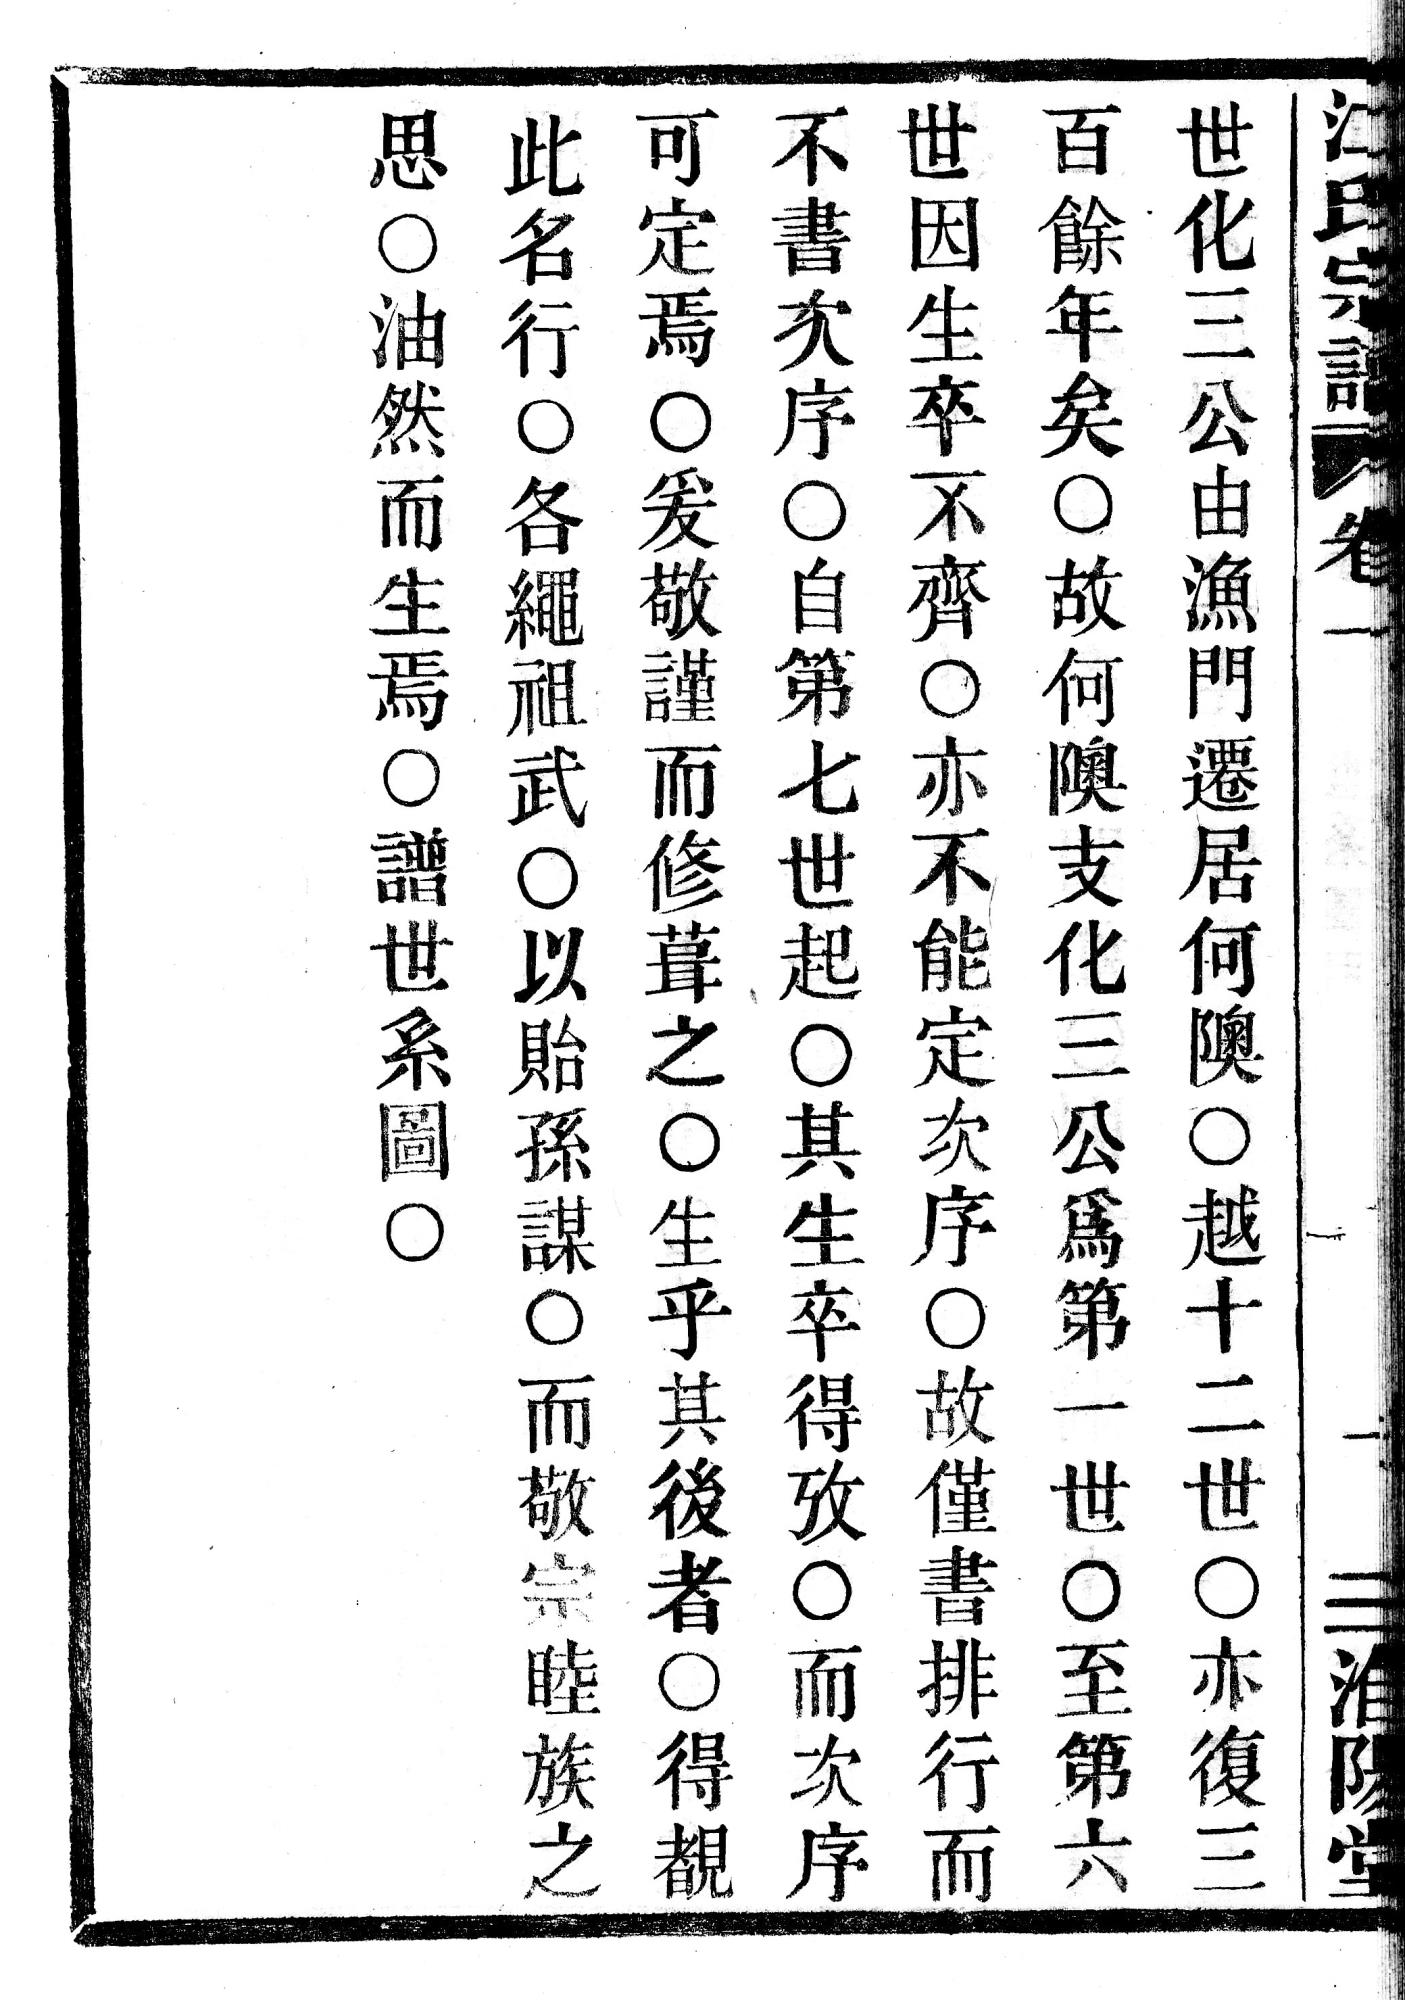 江氏宗譜 卷一 一 二 淮陽堂
世化三公由漁門遷居何隩○越十二世○亦復三
百餘年矣○故何隩支化三公爲第一世○至第六
世因生卒不齊○亦不能定次序○故僅書排行而
不書次序○自第七世起○其生卒得攷○而次序
可定焉○爰敬謹而修葺之○生乎其後者○得覩
此名行○各繩祖武○以貽孫謀○而敬宗睦族之
思○油然而生焉○譜世系圖○